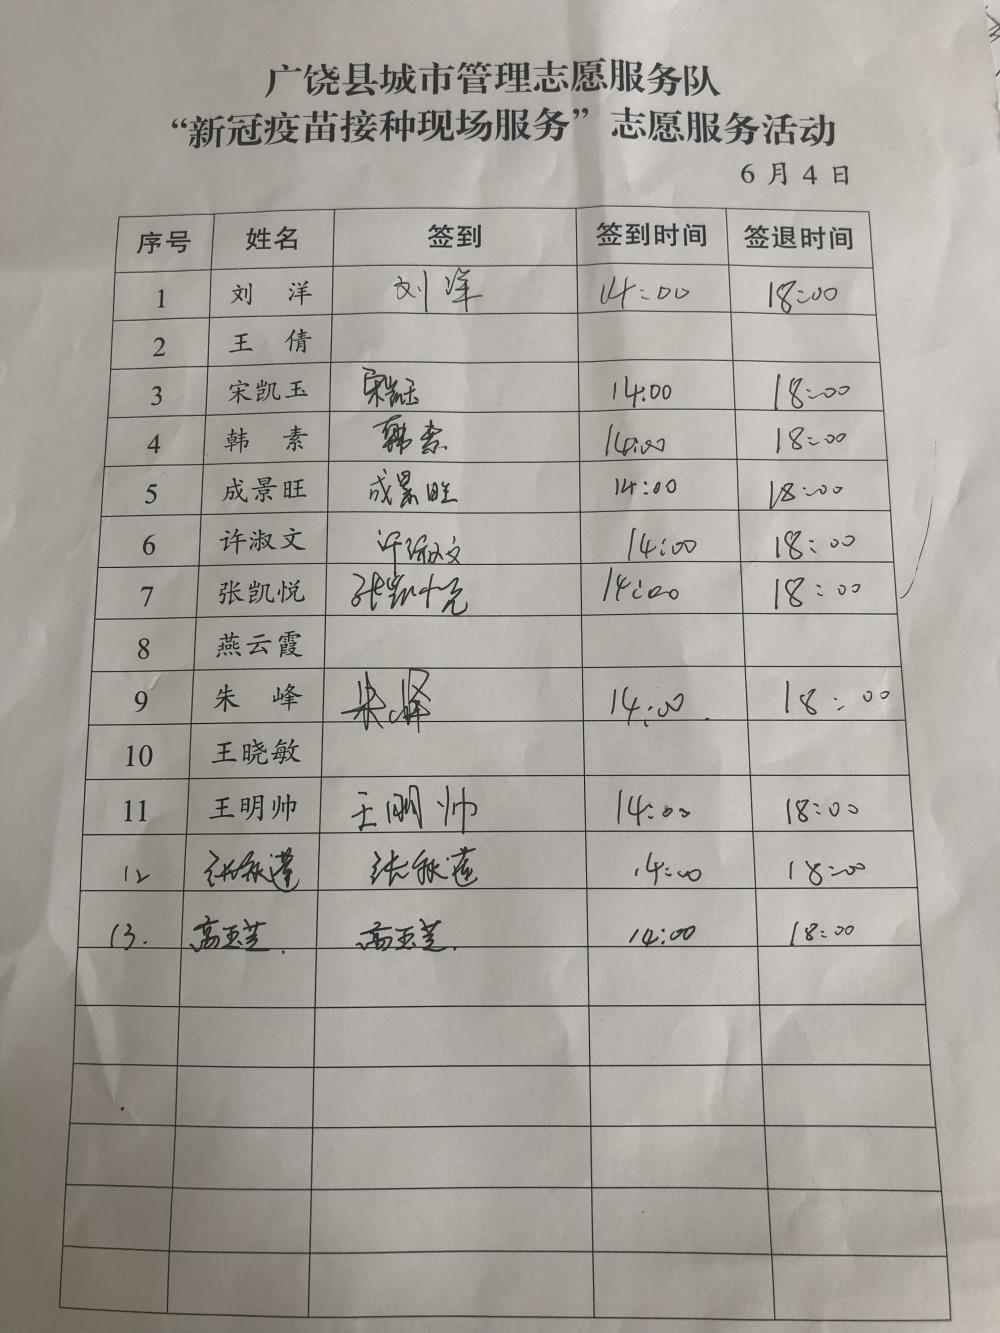 广饶县城市管理志愿服务队
“新冠疫苗接种现场服务”志愿服务活动
6月4日
序号 姓名 签到 签到时间 签退时间
1 刘洋 刘洋 14:00 18:00
2 王倩
3 宋凯玉 宋凯玉 14:00 18:00
4 韩素 韩素 14:00 18:00
5 成景旺 成景旺 14:00 18:00
6 许淑文 许淑文 14:00 18:00
7 张凯悦 张凯悦 14:00 18:00
8 燕云霞
9 朱峰 朱峰 14:00 18:00
10 王晓敏
11 王明帅 王明帅 14:00 18:00
12 张秋莲 张秋莲 14:00 18:00
13. 高玉芝. 高玉芝. 14:00 18:00